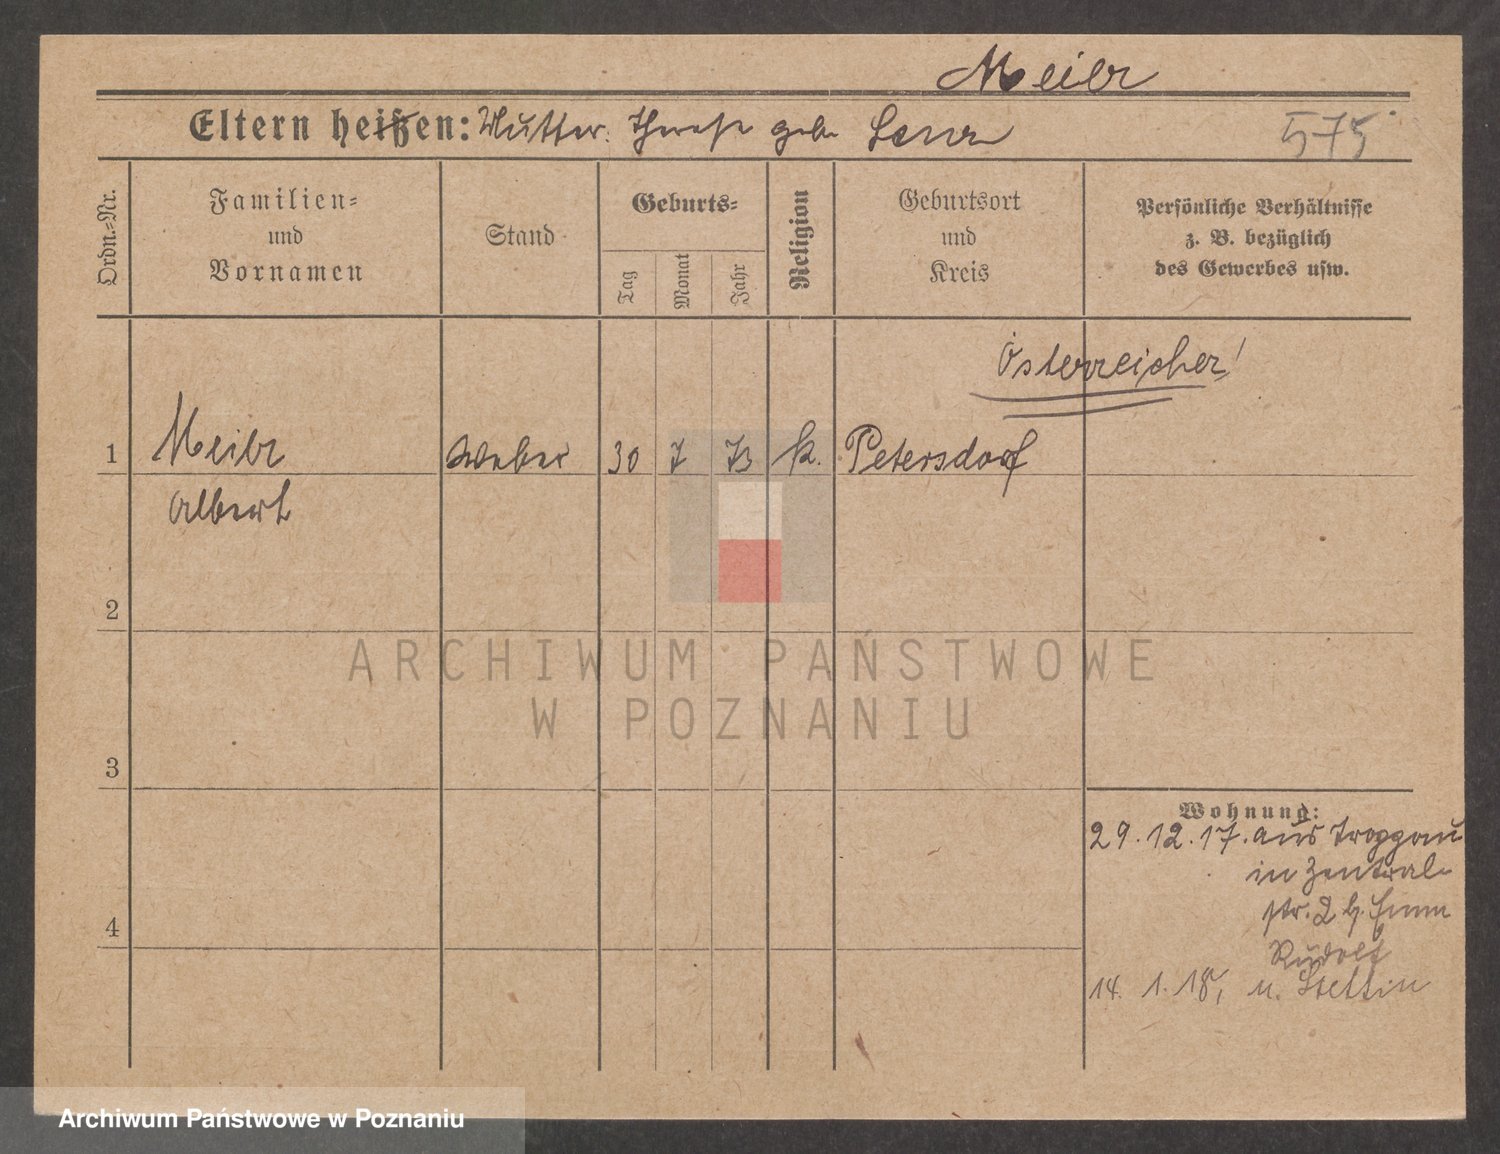 Meier
Eltern heißen: Mutter: Therese geb.
575
Ordn.-Nr.
Familien-
und
Vornamen
Stand
Geburts-
Tag
Monat
Jahr
Religion
Geburtsort
und
Kreis
Persönliche Verhältnisse
z. B. bezüglich
des Gewerbes usw.
Österreicher!
1 Meier Weber 30 7 73 k. Petersdorf
Albert
2
3
4
Wohnung:
29.12.17. aus
in Zentral-
str. 2 b.
Rudolf
14. 1. 18, n. Stettin
ARCHIWUM PAŃSTWOWE
W POZNANIU
Archiwum Państwowe w Poznaniu